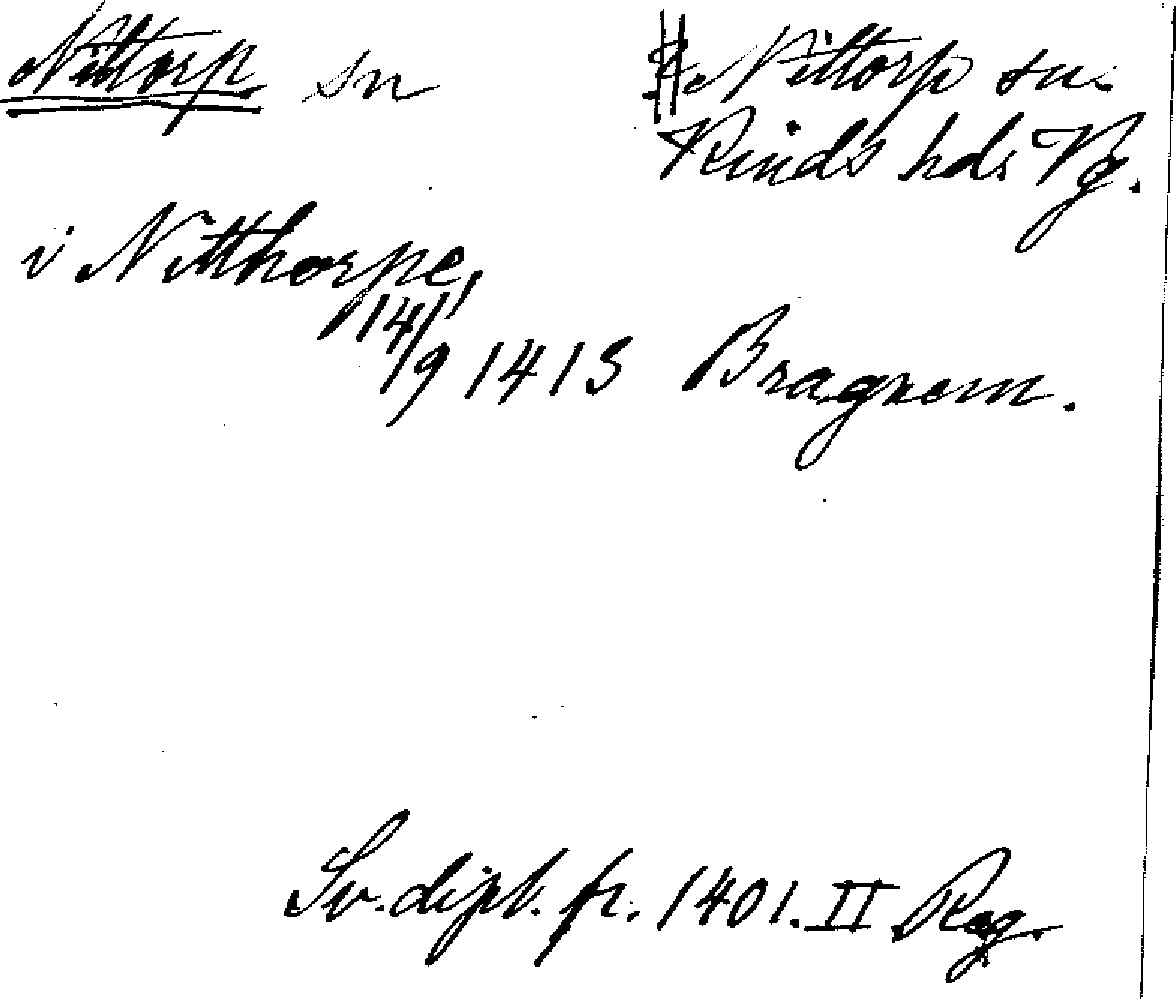 Nittorp sn
# Nittorp sn.
Kinds hds Vg.
i Nitthorpe,
14/9 1413 Bragnem.
Sv. dipl. fr. 1401. II Reg.